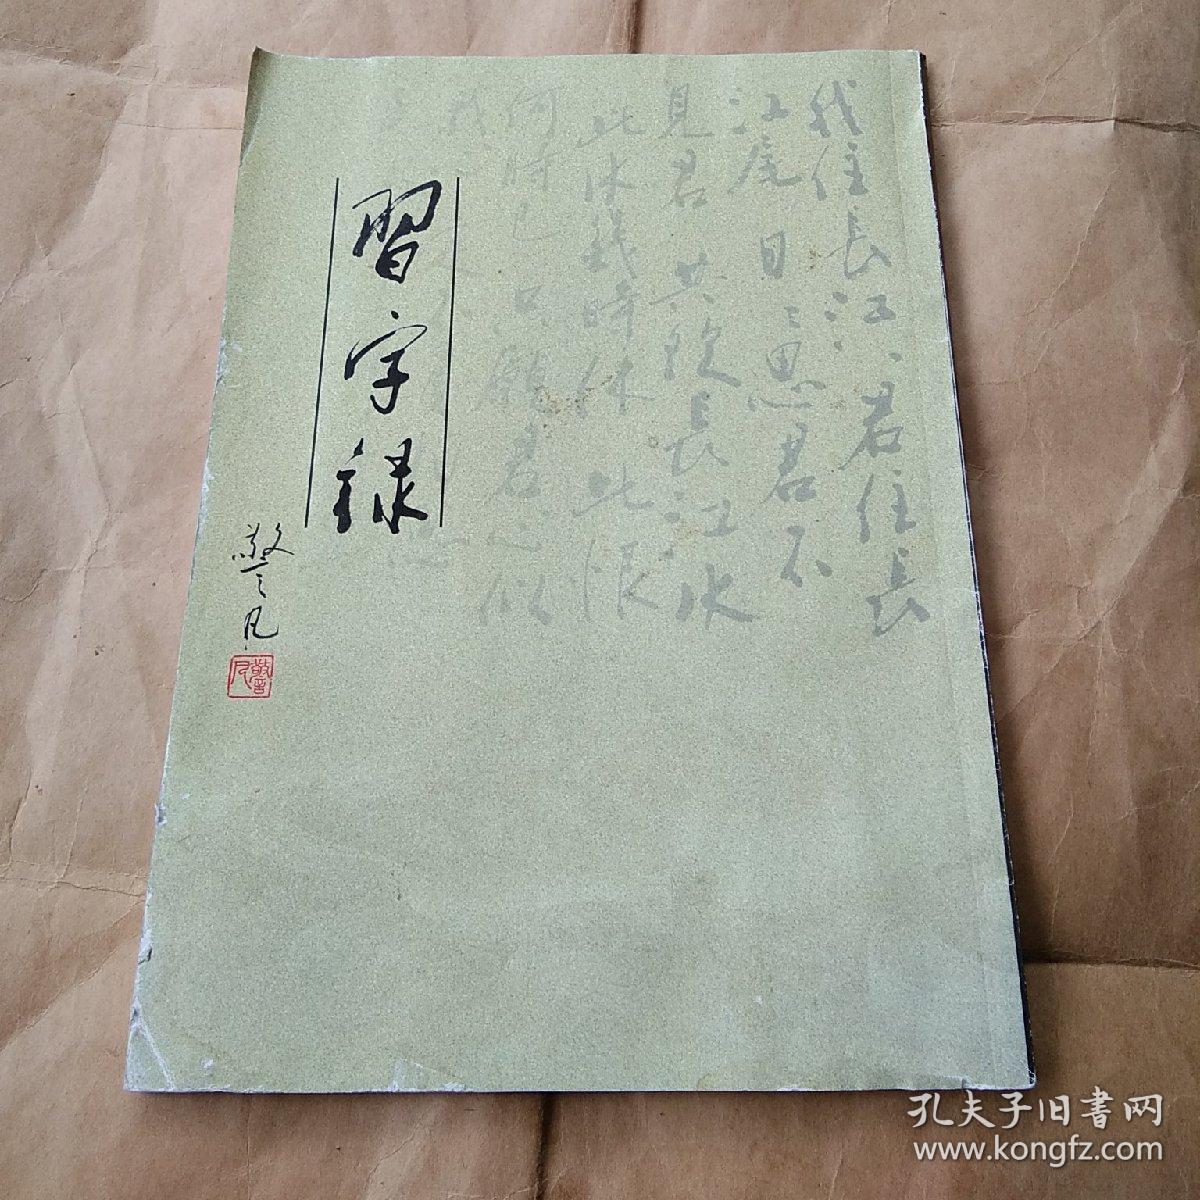 我住長江江君住長
江尾日日思君不
見君共飲長江水
此水幾時休此恨
何時已只願君心似
我
習字録
警凡
孔夫子旧書网
www.kongfz.com